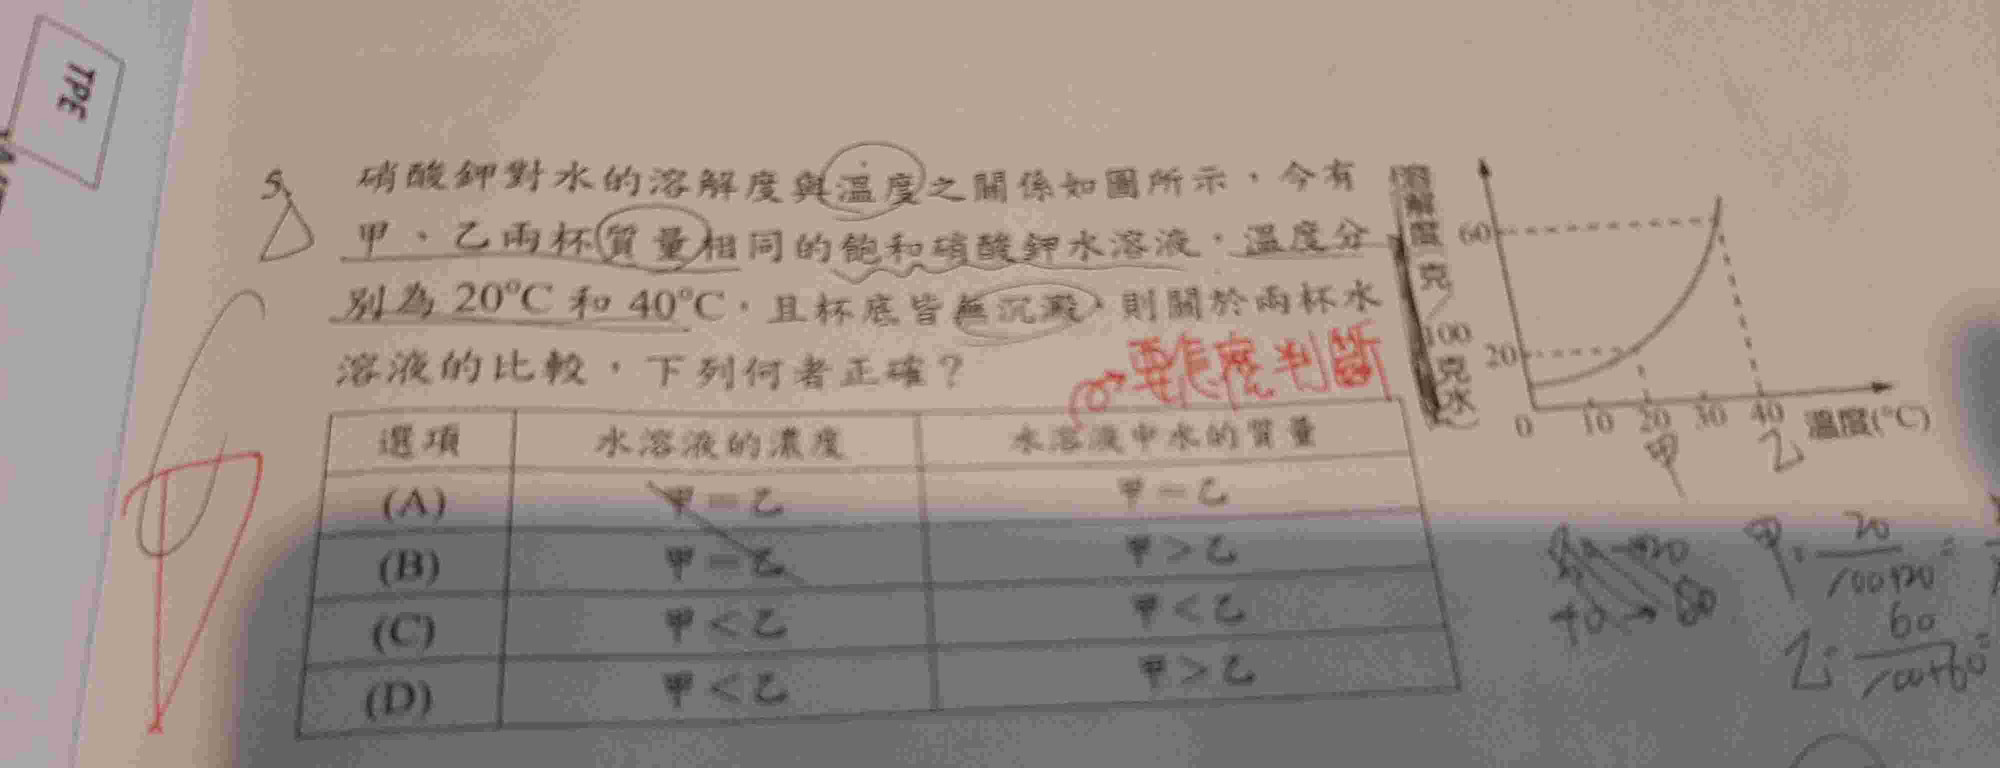 TPE
5、
硝酸鉀對水的溶解度與溫度之關係如圖所示，今有
甲、乙兩杯質量相同的飽和硝酸鉀水溶液，溫度分
別為 20°C 和 40°C，且杯底皆無沉澱，則關於兩杯水
溶液的比較，下列何者正確？
要怎麼判斷
選項 水溶液的濃度 水溶液中水的質量
(A) 甲＝乙 甲＝乙
(B) 甲＝乙 甲＞乙
(C) 甲＜乙 甲＜乙
(D) 甲＜乙 甲＞乙
溶解度(克/100克水)
60
20
0 10 20 30 40 溫度(°C)
甲 乙
甲: 20/100+20 =
40→60
乙: 60/100+60 =